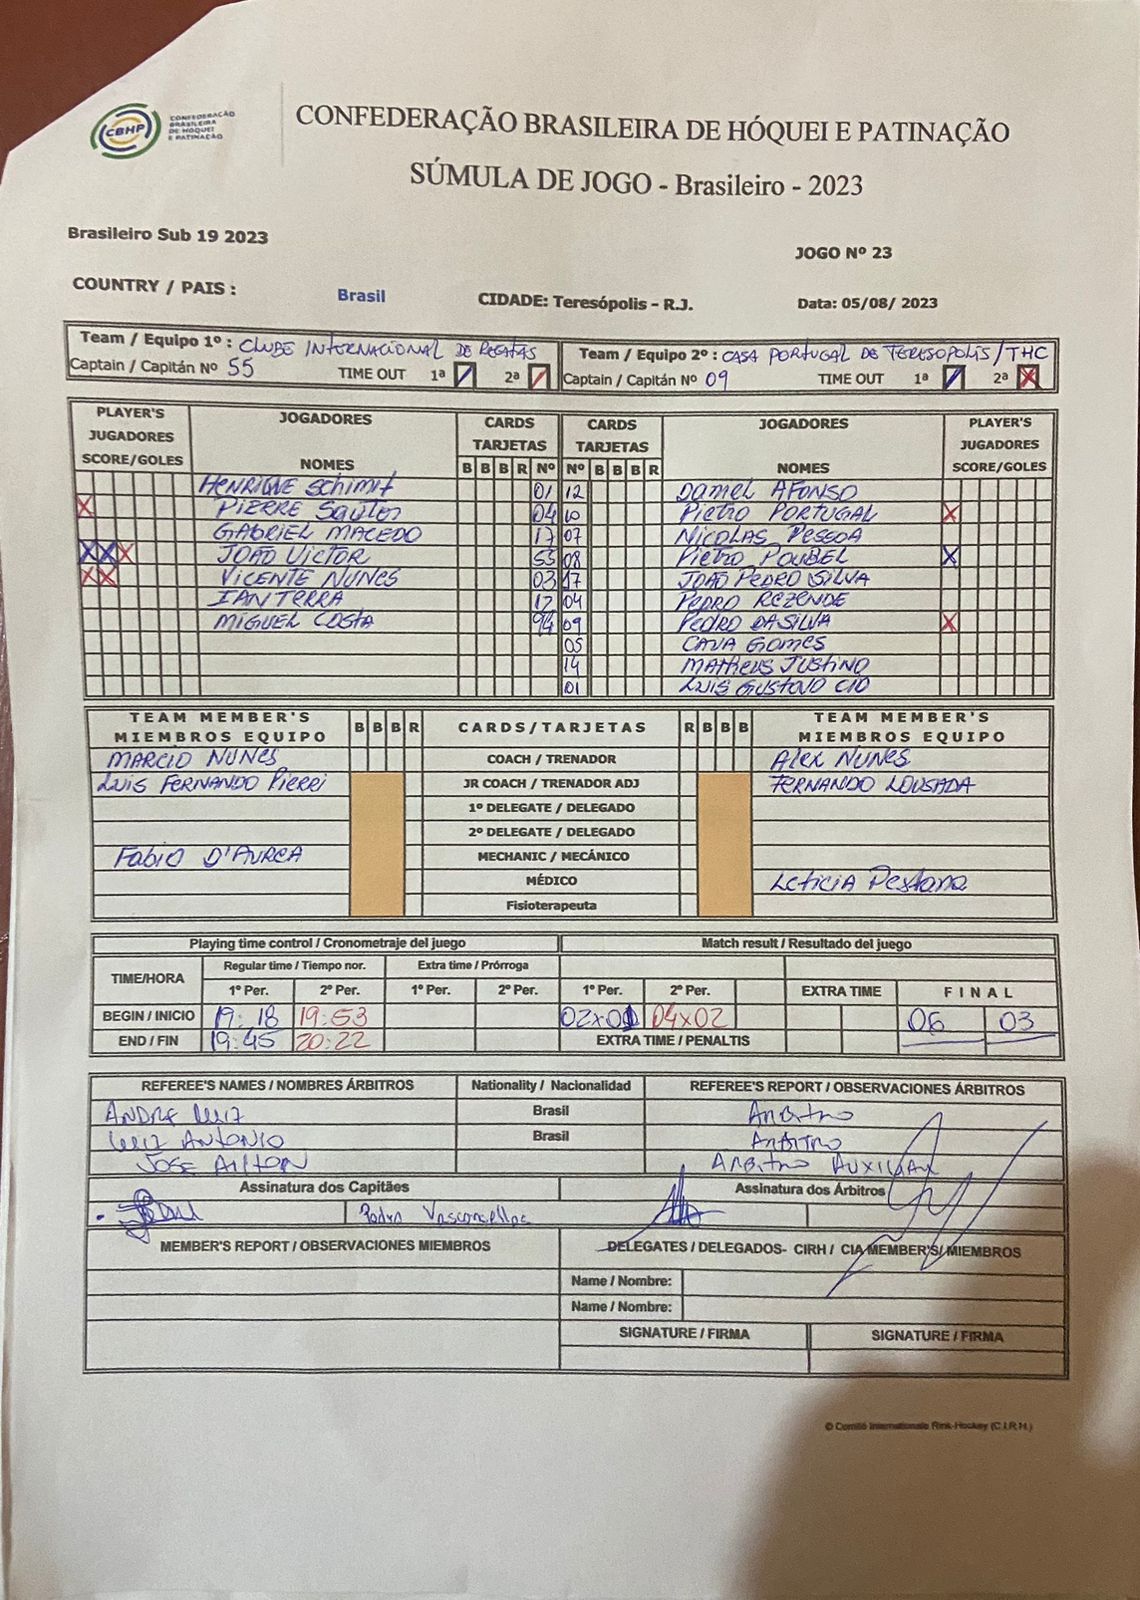 CBHP CONFEDERAÇÃO BRASILEIRA DE HÓQUEI E PATINAÇÃO
CONFEDERAÇÃO BRASILEIRA DE HÓQUEI E PATINAÇÃO
SÚMULA DE JOGO - Brasileiro - 2023
Brasileiro Sub 19 2023
JOGO Nº 23
COUNTRY / PAIS : Brasil CIDADE: Teresópolis - R.J. Data: 05/08/ 2023
Team / Equipo 1º : CLUBE INTERNACIONAL DE REGATAS Team / Equipo 2º : CASA PORTUGAL DE TERESOPOLIS/THC
Captain / Capitán Nº 55 TIME OUT 1ª 2ª Captain / Capitán Nº 09 TIME OUT 1ª 2ª
PLAYER'S JUGADORES SCORE/GOLES JOGADORES NOMES CARDS TARJETAS CARDS TARJETAS JOGADORES NOMES PLAYER'S JUGADORES SCORE/GOLES
B B B R Nº Nº B B B R
HENRIQUE Schimit 01 12 DANIEL AFONSO
X PIERRE Santos 04 10 PIETRO PORTUGAL X
GABRIEL MACEDO 17 07 NICOLAS PESSOA
X X X JOÃO VICTOR 55 08 PIETRO POUBEL X
X X VICENTE NUNES 03 17 JOÃO PEDRO SILVA
IAN TERRA 12 04 PEDRO REZENDE
MIGUEL COSTA 94 09 PEDRO DA SILVA X
05 Gomes
14 MATHEUS JUSTINO
01 LUIS GUSTAVO
TEAM MEMBER'S MIEMBROS EQUIPO B B B R CARDS/TARJETAS R B B B TEAM MEMBER'S MIEMBROS EQUIPO
MARCIO NUNES COACH / TRENADOR ALEX NUNES
LUIS FERNANDO Pierri JR COACH / TRENADOR ADJ FERNANDO LOUSADA
1º DELEGATE / DELEGADO
2º DELEGATE / DELEGADO
Fabio D'AUREA MECHANIC / MECÁNICO
MÉDICO LETICIA Pestana
Fisioterapeuta
Playing time control / Cronometraje del juego Match result / Resultado del juego
TIME/HORA Regular time / Tiempo nor. Extra time / Prórroga
1º Per. 2º Per. 1º Per. 2º Per. 1º Per. 2º Per. EXTRA TIME F I N A L
BEGIN / INICIO 19:18 19:53 02x01 04x02 06 03
END / FIN 19:45 20:22 EXTRA TIME / PENALTIS
REFEREE'S NAMES / NOMBRES ÁRBITROS Nationality / Nacionalidad REFEREE'S REPORT / OBSERVACIONES ÁRBITROS
ANDRE LUIZ Brasil Arbitro
LUIZ ANTONIO Brasil ARBITRO
JOSE AILTON ARBITRO AUXILIAR
Assinatura dos Capitães Assinatura dos Árbitros
Pedro Vasconcellos
MEMBER'S REPORT / OBSERVACIONES MIEMBROS DELEGATES / DELEGADOS- CIRH / CIA MEMBER'S/ MIEMBROS
Name / Nombre:
Name / Nombre:
SIGNATURE / FIRMA SIGNATURE / FIRMA
© Comité Internationale Rink-Hockey (C.I.R.H.)